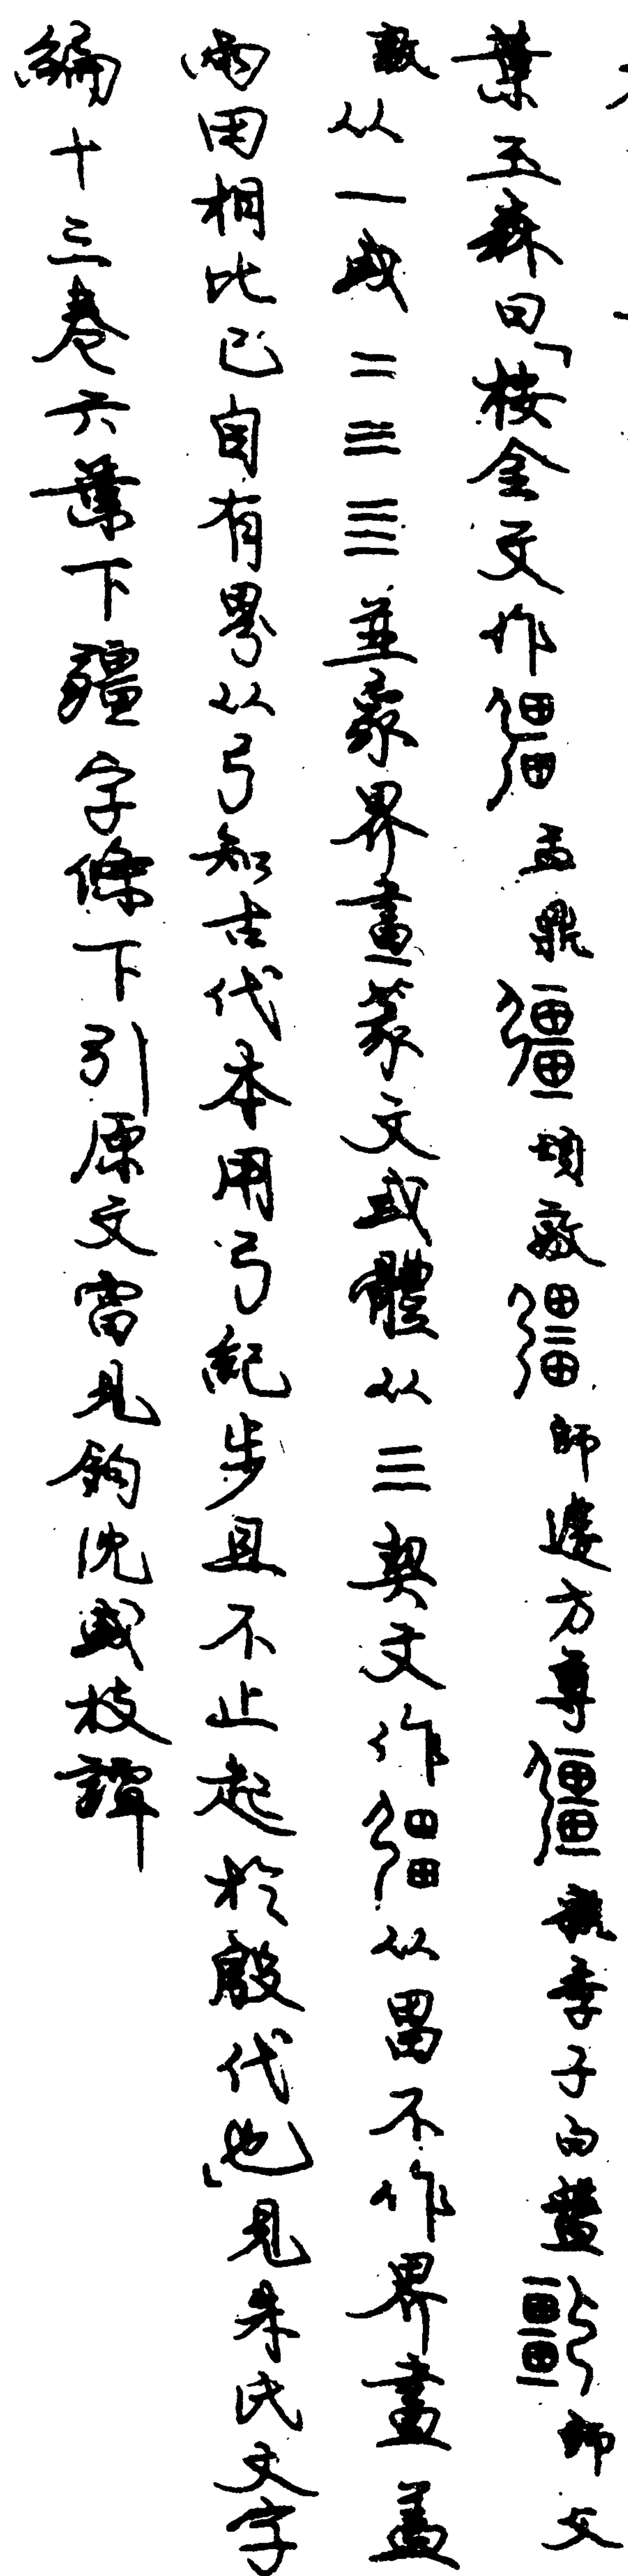 葉玉森曰「桉金文作盂鼎頌𣪘師遽方尊虢季子白盤師文
𣪘从一或二三亖並象界畫篆文或體从三契文作从畕不作界畫蓋
兩田相比已自有界从弓知古代本用弓紀步且不止起於殷代也」見朱氏文字
編十三卷六葉下疆字條下引原文當見鉤沈或枝譚